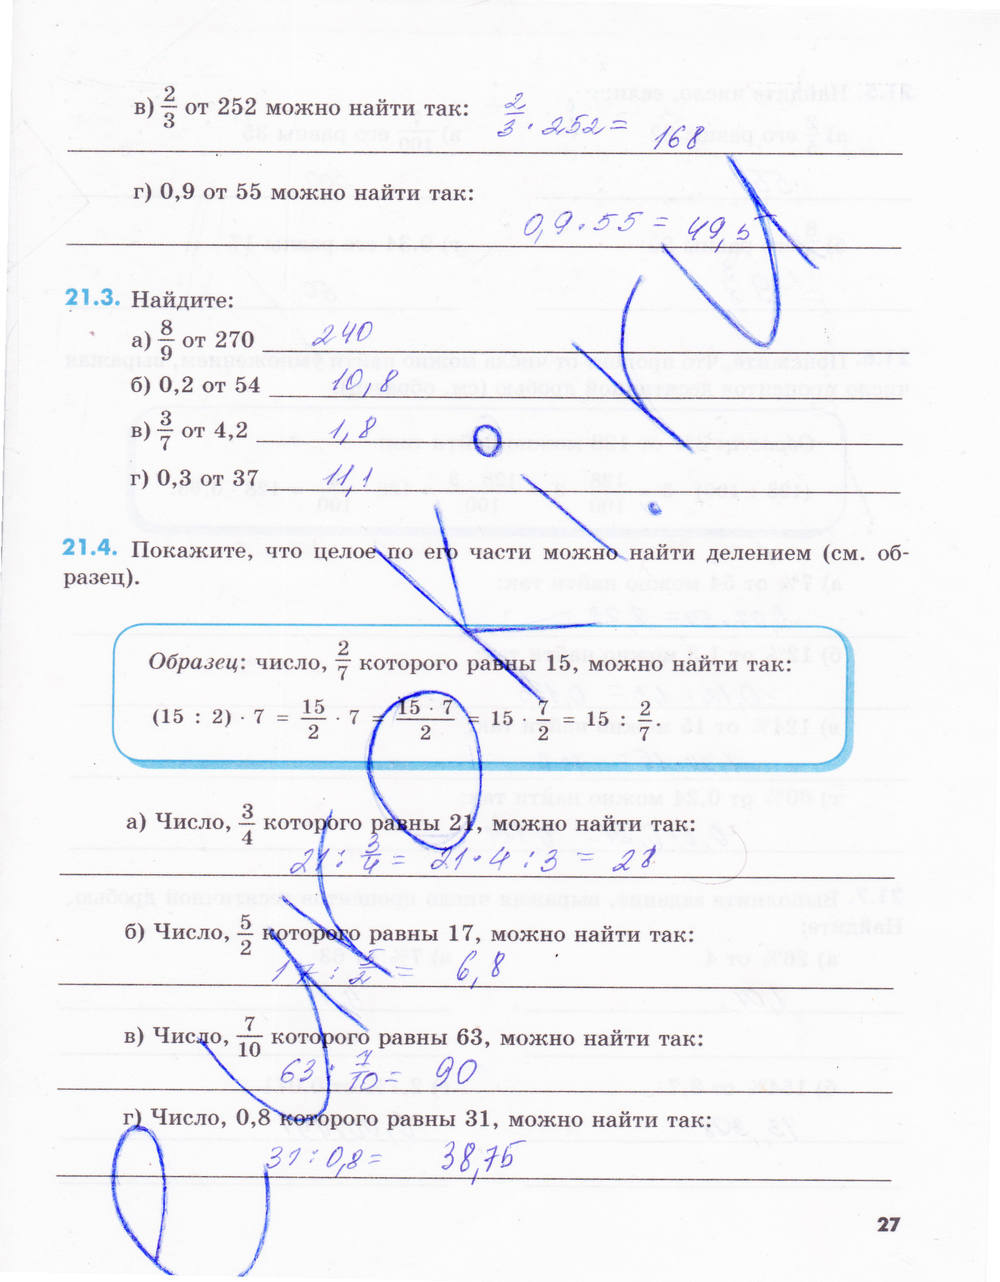 в) 2/3 от 252 можно найти так: 2/3 · 252 = 168
г) 0,9 от 55 можно найти так:
0,9 · 55 = 49,5
21.3. Найдите:
а) 8/9 от 270 240
б) 0,2 от 54 10,8
в) 3/7 от 4,2 1,8
г) 0,3 от 37 11,1
21.4. Покажите, что целое по его части можно найти делением (см. об-
разец).
Образец: число, 2/7 которого равны 15, можно найти так:
(15 : 2) · 7 = 15/2 · 7 = (15 · 7)/2 = 15 · 7/2 = 15 : 2/7.
а) Число, 3/4 которого равны 21, можно найти так:
21 : 3/4 = 21 · 4 : 3 = 28
б) Число, 5/2 которого равны 17, можно найти так:
17 : 5/2 = 6,8
в) Число, 7/10 которого равны 63, можно найти так:
63 : 7/10 = 90
г) Число, 0,8 которого равны 31, можно найти так:
31 : 0,8 = 38,75
27